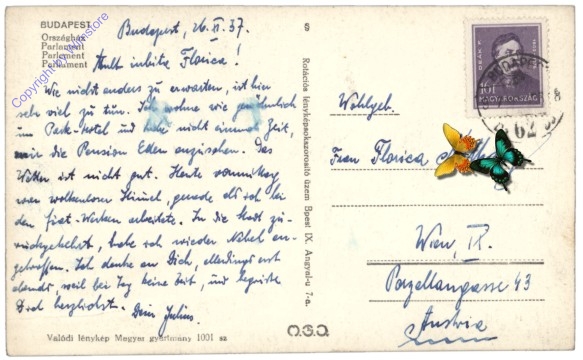 BUDAPEST
Országház
Parlament
Parlament
Parlament
Copyright by wnrstore
Budapest, 26.II.37.
Mult iubita Florica!
Wie nicht anders zu erwarten, ist hier
sehr viel zu tun. Ich wohne wie gewöhnlich
im Park-Hotel und habe nicht einmal Zeit,
mir die Pension Eden anzusehen. Das
Wetter ist nicht gut. Heute vormittag
war wolkenloser Himmel, gerade als ich bei
den Fiat-Werken arbeitete. In die Stadt zu-
rückgekehrt, habe ich wieder Nebel an-
getroffen. Ich denke an Dich, allerdings erst
abends, weil bei Tag keine Zeit, und begrüße
Dich herzlichst. Dein Julius.
Valódi fénykép Magyar gyártmány 1001 sz
Rotációs fényképsokszorosító üzem Bpest IX. Angyal-u 7-a.
MAGYARORSZÁG
BUDAPEST
62
Wohlgeb.
Frau Florica
Wien, IX.
Porzellangasse 43
Austria